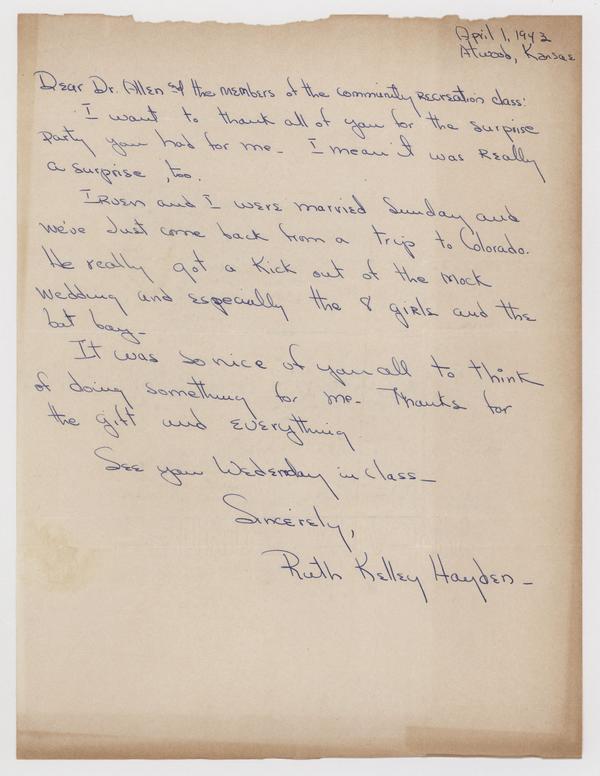 April 1, 1943
Atwood, Kansas
Dear Dr. Allen and the members of the community Recreation class:
I want to thank all of you for the surprise
party you had for me - I mean it was really
a surprise, too.
Irven and I were married Sunday and
we've just come back from a trip to Colorado.
He really got a kick out of the mock
wedding and especially the 8 girls and the
bat boy -
It was so nice of you all to think
of doing something for me - Thanks for
the gift and everything
See you Wedenday in class -
Sincerely,
Ruth Kelley Hayden -